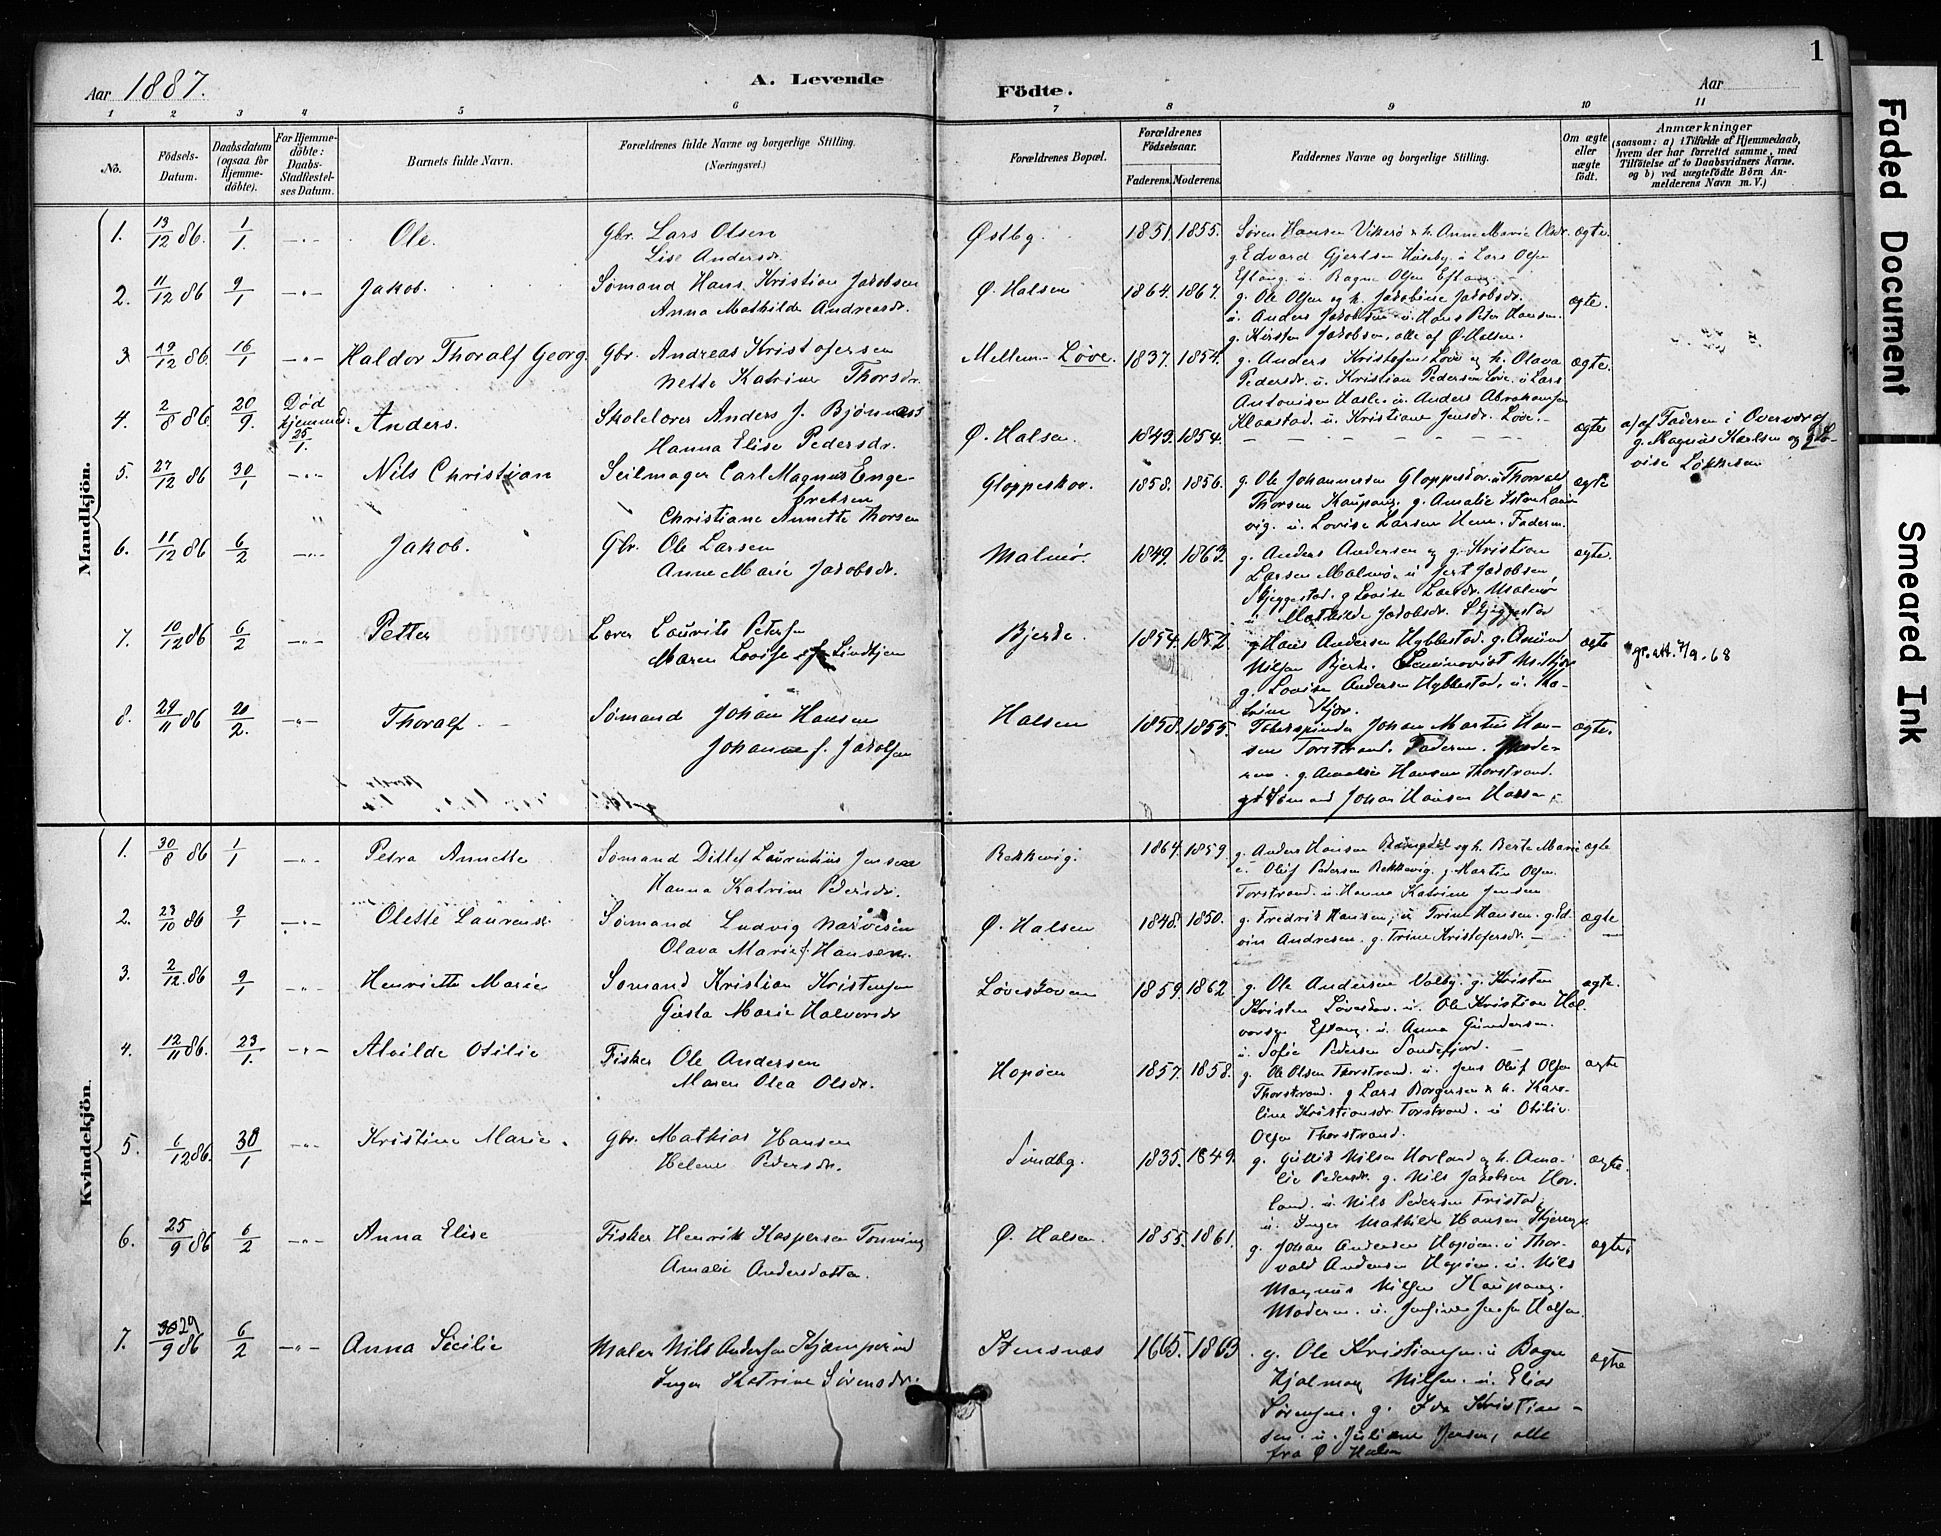 1
Aar 1887.
A. Levende
Födte.
Aar
1 2 3 4 5 6 7 8 9 10 11
No.
Födsels-Datum.
Daabsdatum (ogsaa for Hjemmedöbte).
For Hjemmedöbte: Daabs-Stadfestelses Datum.
Barnets fulde Navn.
Forældrenes fulde Navne og borgerlige Stilling.
(Næringsvei.)
Forældrenes Bopæl.
Forældrenes Födselsaar.
Faderens. Moderens.
Faddernes Navne og borgerlige Stilling.
Om ægte eller uægte födt.
Anmærkninger
(saasom: a) i Tilfælde af Hjemmedaab, hvem der har forrettet samme, med Tilföielse af to Daabsvidners Navne. og b) ved uægtefödte Börn Anmelderens Navn m. V.)
Mandkjön.
1. 13/12 86. 1/1 Ole. Gbr. Lars Olsen
Lise Andersdr.
Østby. 1851. 1855. Søren Hansen Vikerø & h. Anne Marie Olsdr. ægte.
g. Edvard Gjertsen Huseby. u. Lars Olsen
Eftang. u. Ragne Olsen Eftang.
2. 11/12 86 9/1 Jakob. Sømand Hans Kristian Jakobsen
Anna Mathilde Andreasdr.
Ø. Halsen 1864. 1867. g. Ole Olsen og h. Jakobine Jakobsdr. ægte.
u. Anders Jakobsen. u. Hans Peter Hansen.
g. Kirsten Jakobsen, alle af Ø. Halsen.
3 19/12 86. 16/1 Haldor Thoralf Georg. Gbr. Andreas Kristofersen
Nette Katrine Thorsdr.
Mellem-Løve. 1837. 1854. g. Anders Kristofersen Løve og h. Olava ægte.
Pedersdr. u. Kristian Pedersen Løve. u. Lars
Antonisen Hasle. u. Anders Abrahamsen
Klaastad. u. Kristiane Jensdr. Løve.
4. 2/8 86. 20/9. Død hjemmed. 25/1. Anders. Skolelærer Anders J. Bjønnes
Hanna Elise Pedersdr.
Ø. Halsen. 1849. 1854. ægte a/ af Faderen i Overvær af
g. Magnus Karlsen og g. Lo-
vise Løkkesen
5. 27/12 86 30/1 Nils Christian Seilmager Carl Magnus Enge-
bretsen
Christiane Annette Thorsen
Gloppeskov. 1858. 1856. g. Ole Johannesen u. Thorvald ægte
Thorsen Kaupang. g. Amalie Laur-
vig. u. Lovise Larsen Hem. Faderen.
6. 11/12 86 6/2 Jakob. Gbr. Ole Larsen
Anne Marie Jakobsdr.
Malmø. 1849. 1863. g. Anders Andersen og g. Kristian ægte.
Larsen Malmø. u. Gert Jakobsen
Skjeggestad. g. Lovise Larsdr. Malmø
u. Mathilde Jakobsdr. Skjeggestad
7. 10/12 86 6/2 Petter Lærer Laurits Petersen
Maren Lovise Lindhjem
Bjerke. 1854. 1852. g. Hans Andersen Hybbestad. g. Amund ægte gr. att. 7/9. 68
Nilsen Bjerke. N. Kjær
g. Lovise Andersen Hybbestad. u. Ka-
trine Kjær.
8. 29/11 86 20/2. Thoralf. Sømand Johan Hansen
Johanne f. Jakobsen
Halsen 1858. 1855. Johan Martin Han- ægte.
sen Torstrand. Faderen. Mode-
ren. g. Amalie Hansen Thorstrand.
Sømand Johan Hansen Halsen.
Kvindekjön.
1. 30/8 86 1/1 Petra Annette Sømand Ditlef Laurentius Jensen
Hanna Katrine Pedersdr.
Rekkevig. 1864. 1859 g. Anders Hansen og h. Berte Marie ægte
u. Oluf Pedersen Rekkevig. g. Martin Olsen
Torstrand. u. Hanna Katrine Jensen
2. 23/10 86 9/1 Olette Laurense Sømand Ludvig Narvesen
Olava Marie f. Hansen.
Ø. Halsen 1848. 1850. g. Fredrik Hansen, u. Trine Hansen. g. Ed- ægte
vin Andresen. g. Trine Kristofersdr.
3. 2/12. 86 9/1 Henriette Marie Sømand Kristian Kristensen
Gusta Marie Halvorsdr
Løveskoven 1859. 1862 g. Ole Andersen Valby. g. Kristen ægte.
Kristen Løveskov. u. Ole Kristian Hal-
vorsen Eftang. u. Anna Gundersen.
u. Sofie Pedersen Sandefjord.
4. 12/11 86. 23/1. Alvilde Otilie Fisker Ole Andersen
Maren Olea Olsdr.
Hopøen 1857. 1858. g. Ole Olsen Thorstrand. u. Jens Oluf Olsen ægte
Thorstrand. g. Lars Borgersen & h. Karo-
line Kristiansdr Torstrand. u. Otilie
Olsen Thorstrand.
5. 6/12 86. 30/1 Kristine Marie. Gbr. Mathias Hansen
Helene Pedersdr.
Sundby. 1835. 1849. g. Gullik Nilsen Hovland og h. Ama- ægte.
lie Pedersdr. g. Nils Jakobsen Hov-
land. u. Nils Pedersen Fristad,
u. Inger Mathilde Hansen
6. 25/9 86 6/2 Anna Elise Fisker Henrik Kaspersen Tonning
Amalie Andersdatter.
Ø. Halsen. 1855. 1861. g. Johan Andersen Hopøen. u. Thor- ægte.
vald Andersen Hopøen. u. Nils
Magnus Nilsen Kaupang.
Moderen. u. Josefine Jensen Halsen.
7. 29/9 86 6/2 Anna Sicilie Maler Nils Andersen Kjæmperud
Inger Katrine Sørensdr.
Stensnæs 1865. 1863. g. Ole Kristiansen. u. Ragne ægte
Hjalmar Nilsen. u. Elias
Sørensen. g. Ida Kristian-
sen. u. Juliane Jensen, alle
fra Ø. Halsen
Faded Document
Smeared Ink